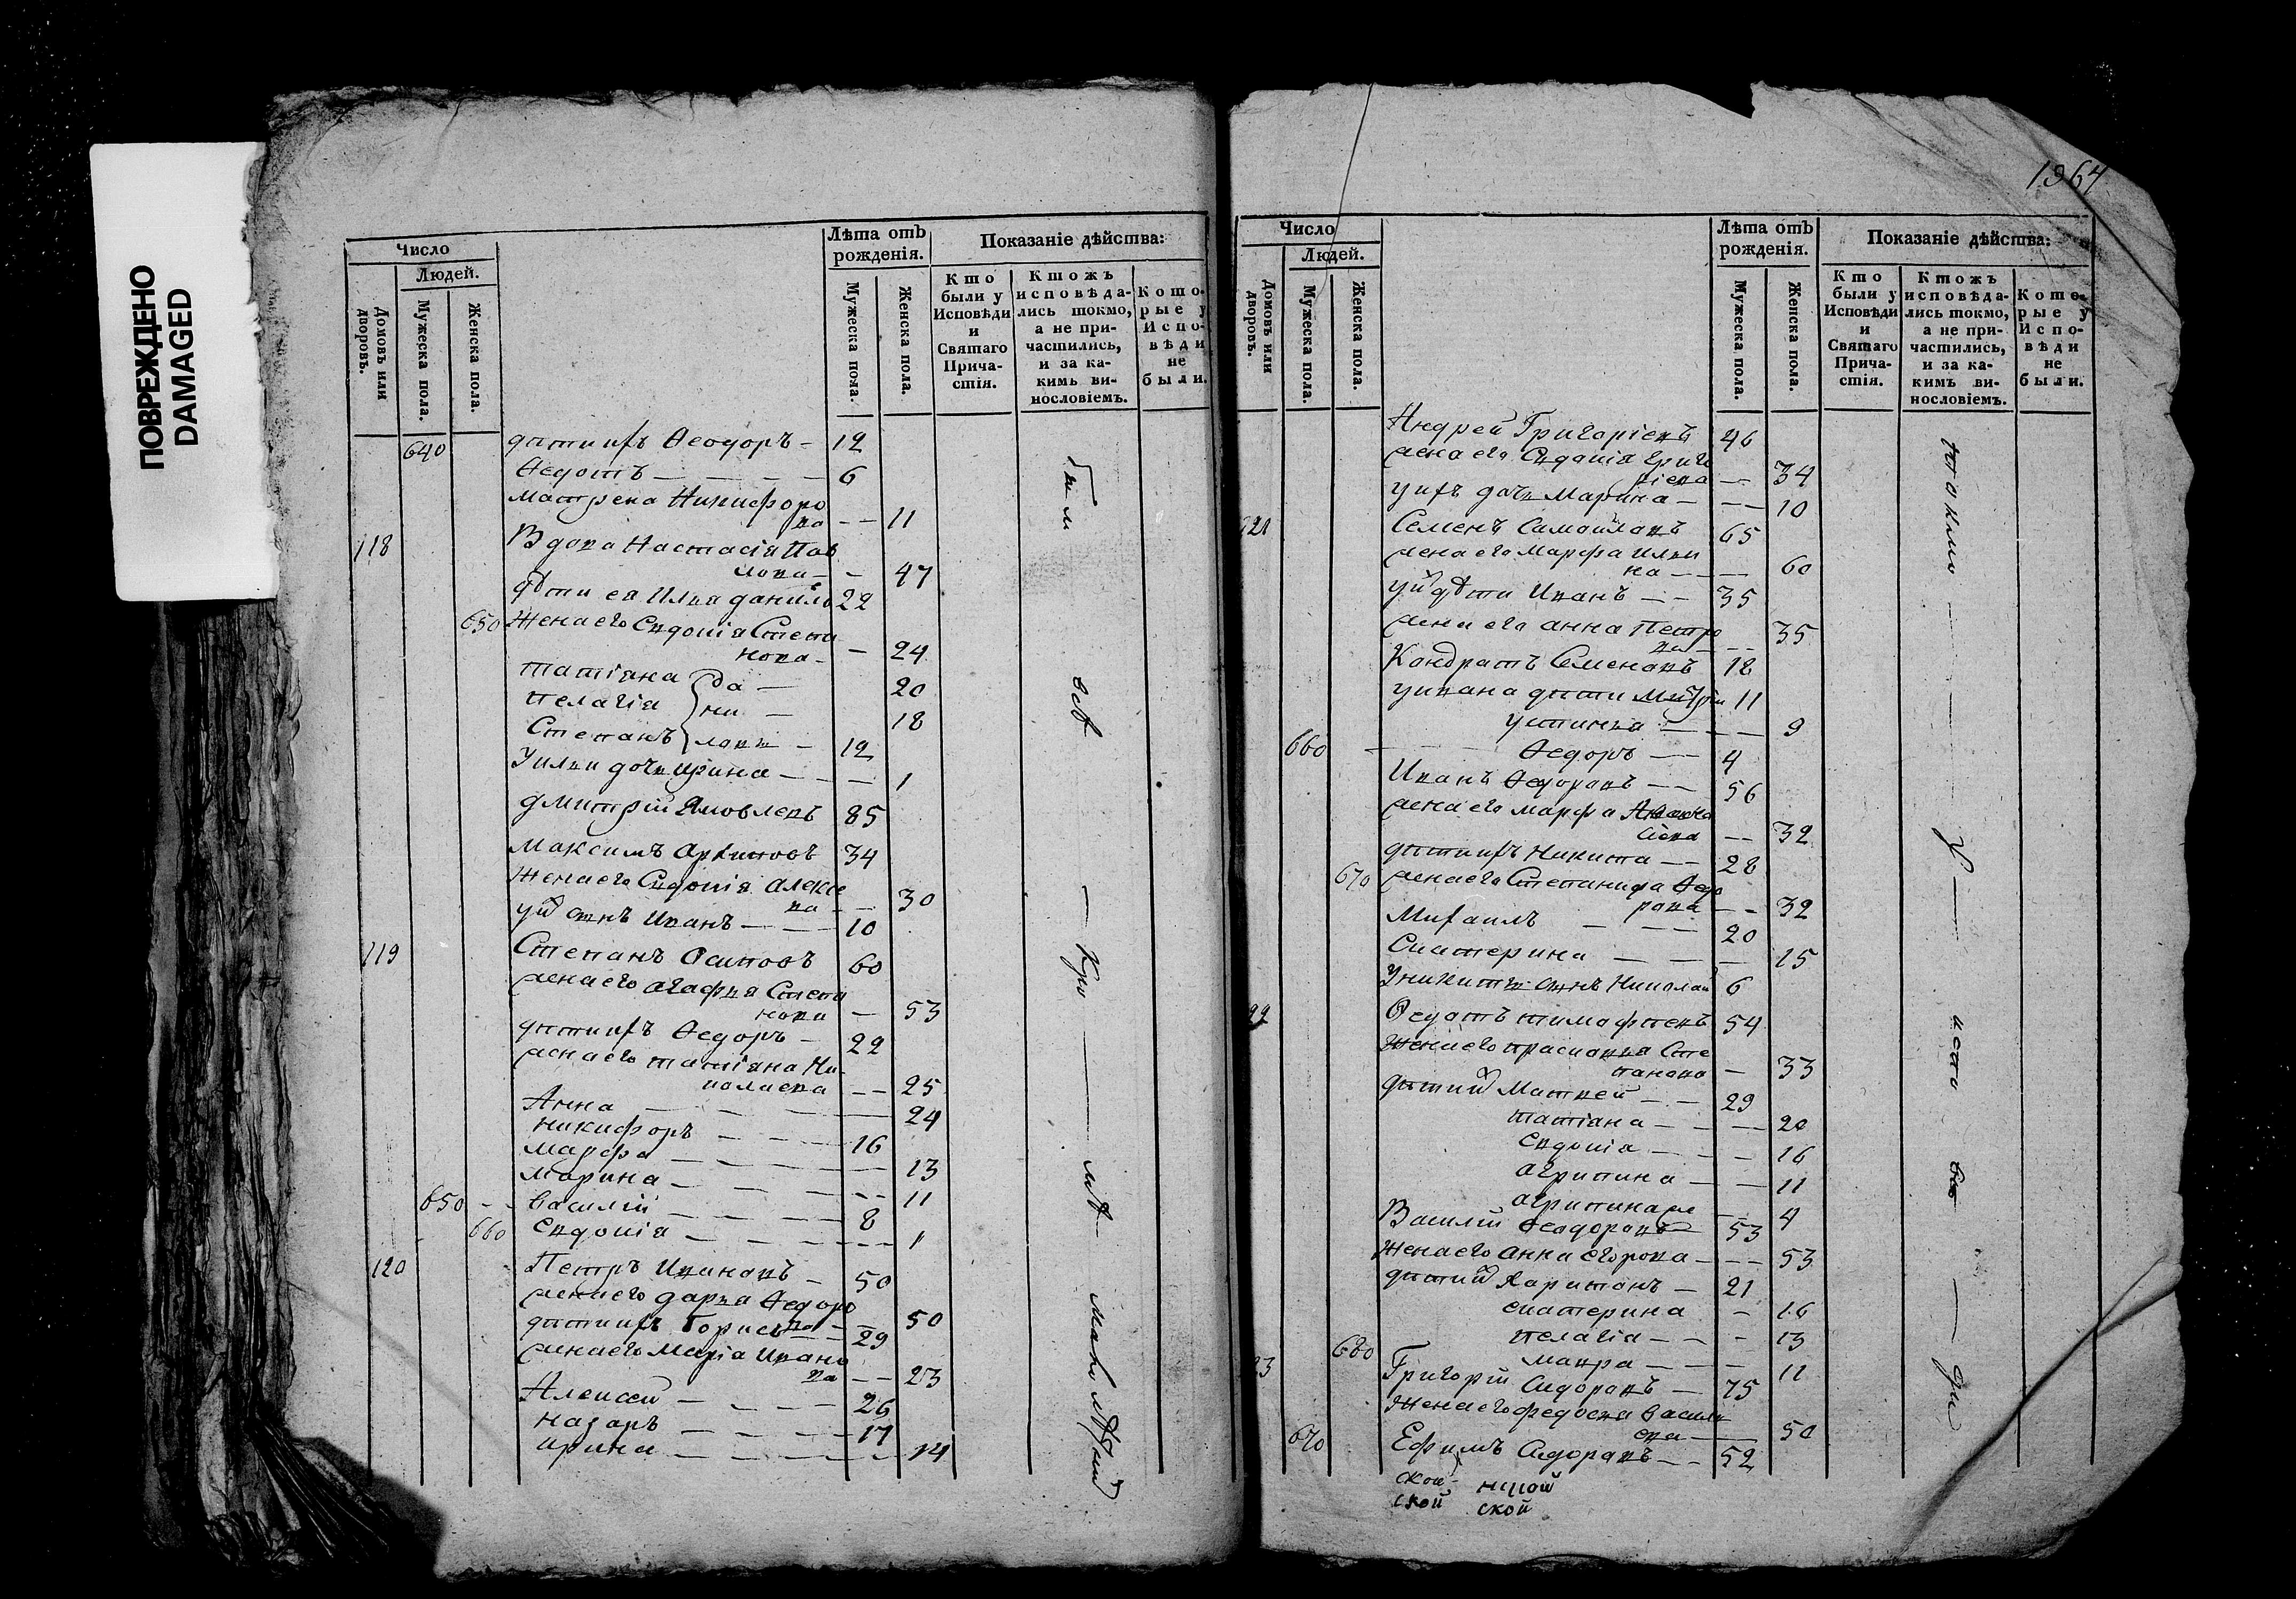 ПОВРЕЖДЕНО
DAMAGED
Число
Людей.
Домовъ или дворовъ.
Мужеска пола.
Женска пола.
Лѣта отъ рожденія.
Мужеска пола.
Женска пола.
Показаніе дѣйства:
Кто были у Исповѣди и Святаго Причастія.
Ктожъ исповѣдались токмо, а не причастились, и за какимъ винословіемъ.
Которые у Исповѣди не были.
640 дѣти ихъ Ѳеодоръ - 12
Ѳедотъ - 6
Матрена Никифоро
ва - - 11
118 Вдова Настасія Пав
лова - - 47
дѣти ея Илья Данило 22
650 Жена его Евдокія Степа
нова - - 24
Татіана да - 20
Пелагія ни - 18
Степанъ ловы - 12
У Ильи дочь Ирина - - - 1
Дмитрій Яковлевъ 85
Максимъ Архиповъ 34
Жена его Евдокія Алексе
ва - - 30
уй сынъ Иванъ - - - 10
119 Степанъ Осиповъ 60
жена его Агафья Степа
нова - 53
дѣти ихъ Ѳедоръ - 22
жена его Татіана Ни-
колаева - - 25
Анна - - - 24
Никифоръ - - - 16
Марфа - - - 13
Марина - - - 11
650 - - Василій - - - 8
660 Евдокія - - - 1
120 Петръ Ивановъ - 50
жена его Дарья Ѳедоро
ва - - 50
дѣти ихъ Борисъ - - 29
жена его Марія Ивано
ва - - 23
Алексей - - - 26
Назаръ - - - 17
Ирина - - - 14
всѣ
малолѣтній
1964
Число
Людей.
Домовъ или дворовъ.
Мужеска пола.
Женска пола.
Лѣта отъ рожденія.
Мужеска пола.
Женска пола.
Показаніе дѣйства:
Кто были у Исповѣди и Святаго Причастія.
Ктожъ исповѣдались токмо, а не причастились, и за какимъ винословіемъ.
Которые у Исповѣди не были.
Андрей Григоріевъ 46
жена его Евдокія Григо
ріева - - 34
у ихъ дочь Марина - - - 10
121 Семенъ Самойловъ 65
жена его Марфа Ильи
на - - - 60
уй дѣти Иванъ - - 35
жена его Анна Петро
ва - - - 35
Кондратъ Семеновъ 18
у Ивана дѣти Митрій 11
Устинья - - - 9
660 Ѳедоръ - - 4
Иванъ Ѳедоровъ - - 56
жена его Марфа
сіева - - 32
дѣти ихъ Никита - - 28
670 жена его Степанида Ѳедо
рова - - 32
Михаилъ - - - 20
Екатерина - - - 15
У Никиты сынъ Николай 6
Ѳедотъ Тимофѣевъ 54
Жена его Прасковья Сте
панова - 33
дѣти ихъ Матвей - - 29
Татіана - - - 20
Евдокія - - - 16
Агрипина - - - 11
Агрипина - - 4
Василій Ѳеодоровъ 53
Жена его Анна Егорова - - - 53
дѣти ихъ Харитонъ - 21
Екатерина - 16
Пелагія - - - 13
680 Мавра - - - 11
Григорій Сидоровъ - 75
Жена его Федосья Василь
ева - - 50
670 Ефимъ Сидоровъ - - 52
ской
ской
токмо